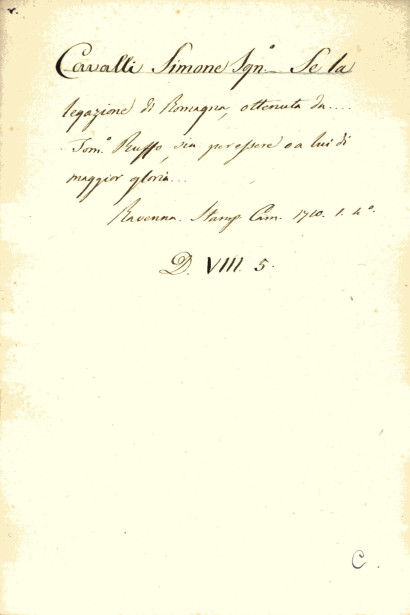 Cavalli Simone Ign.º Se la
legazione di Romagna, ottenuta da....
Tom.º Ruffo, sia per essere o a lui di
maggior gloria...
Ravenna. Stamp Cam. 1710. 1. 4º.
D. VIII. 5.
C.